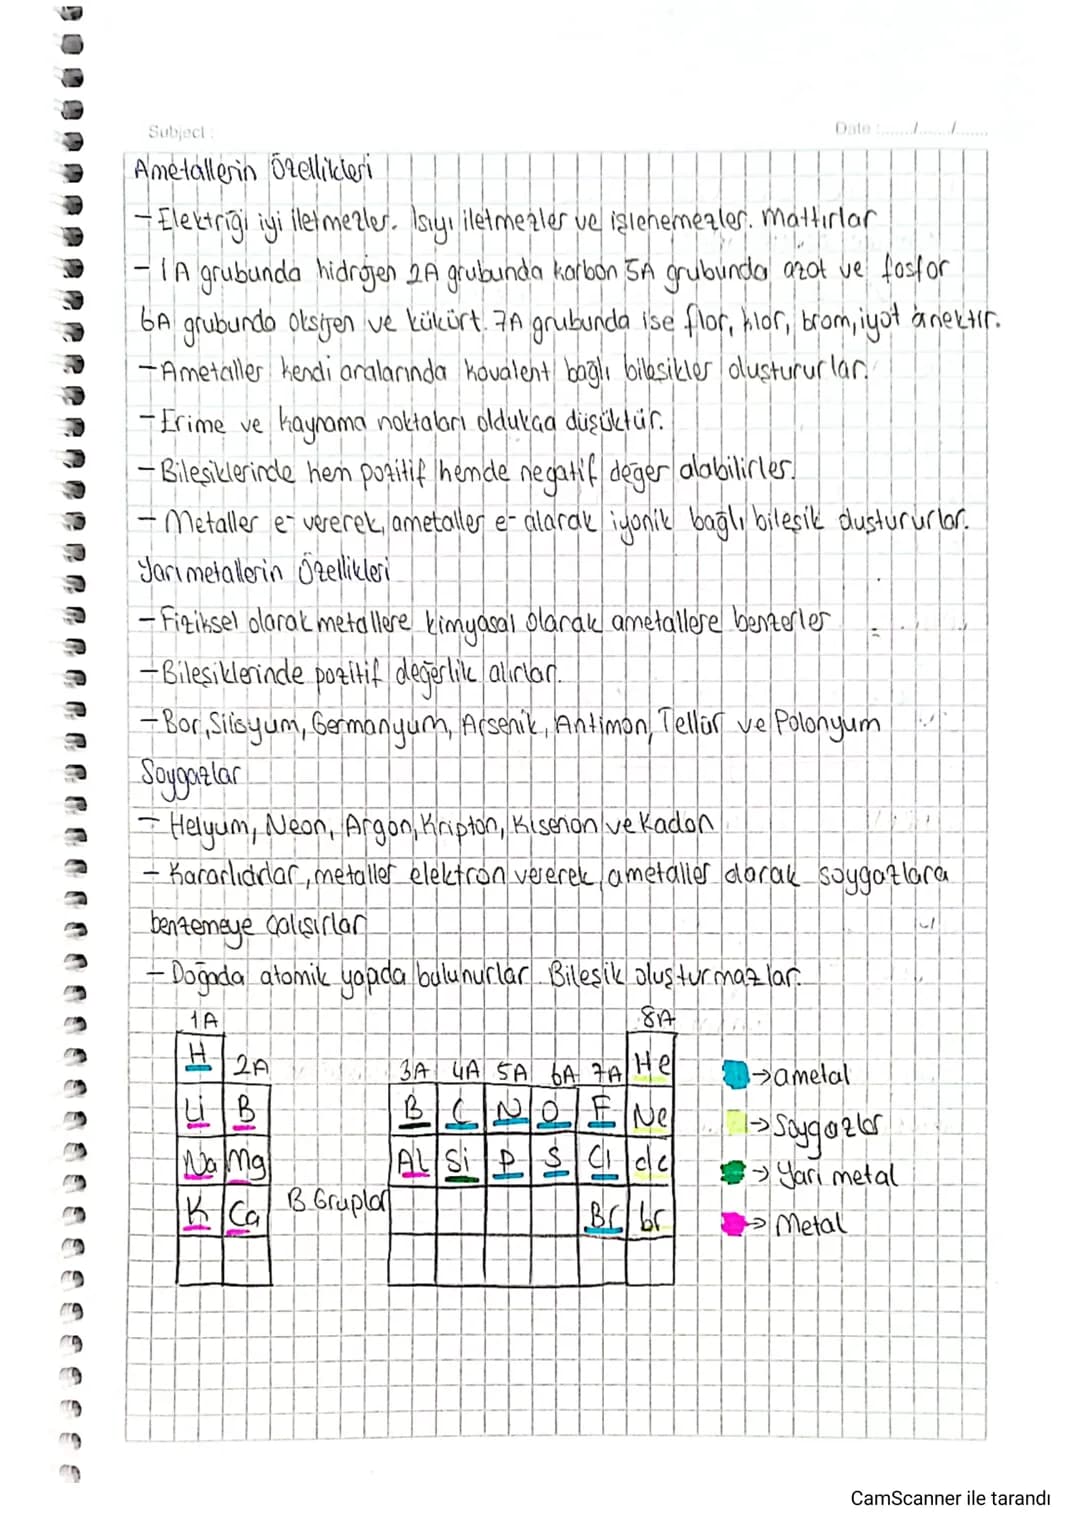 Subject :
Date :....../....../......
Ametallerin Özellikleri
- Elektriği iyi iletmezler. Isıyı iletmezler ve işlenemezler. mattırlar
- 1A grubunda hidrojen 2A grubunda karbon 5A grubunda azot ve fosfor
6A grubunda oksijen ve kükürt. 7A grubunda ise flor, klor, brom, iyot örnektir.
- Ametaller kendi aralarında kovalent bağlı bileşikler oluştururlar.
- Erime ve kaynama noktaları oldukça düşüktür.
- Bileşiklerinde hem pozitif hemde negatif değer alabilirler.
- Metaller e- vererek, ametaller e- alarak iyonik bağlı bileşik oluştururlar.
Yarımetallerin Özellikleri
- Fiziksel olarak metallere kimyasal olarak ametallere benzerler
- Bileşiklerinde pozitif değerlik alırlar.
- Bor, Silisyum, Germanyum, Arsenik, Antimon, Tellür ve Polonyum
Soygazlar
- Helyum, Neon, Argon, Kripton, Kısenon ve Radon
- Kararlıdırlar, metaller elektron vererek, ametaller alarak soygazlara
benzemeye çalışırlar
- Doğada atomik yapıda bulunurlar. Bileşik oluşturmazlar.
1A 8A
H 2A 3A 4A 5A 6A 7A He →ametal
Li B B C N O F Ne → Soygazlar
Na Mg Al Si P S Cl → Yarı metal
K Ca B Gruplar Br br → Metal
CamScanner ile tarandı